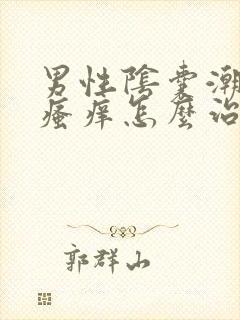 男性陰囊潮
瘙痒怎麼治
郭群山